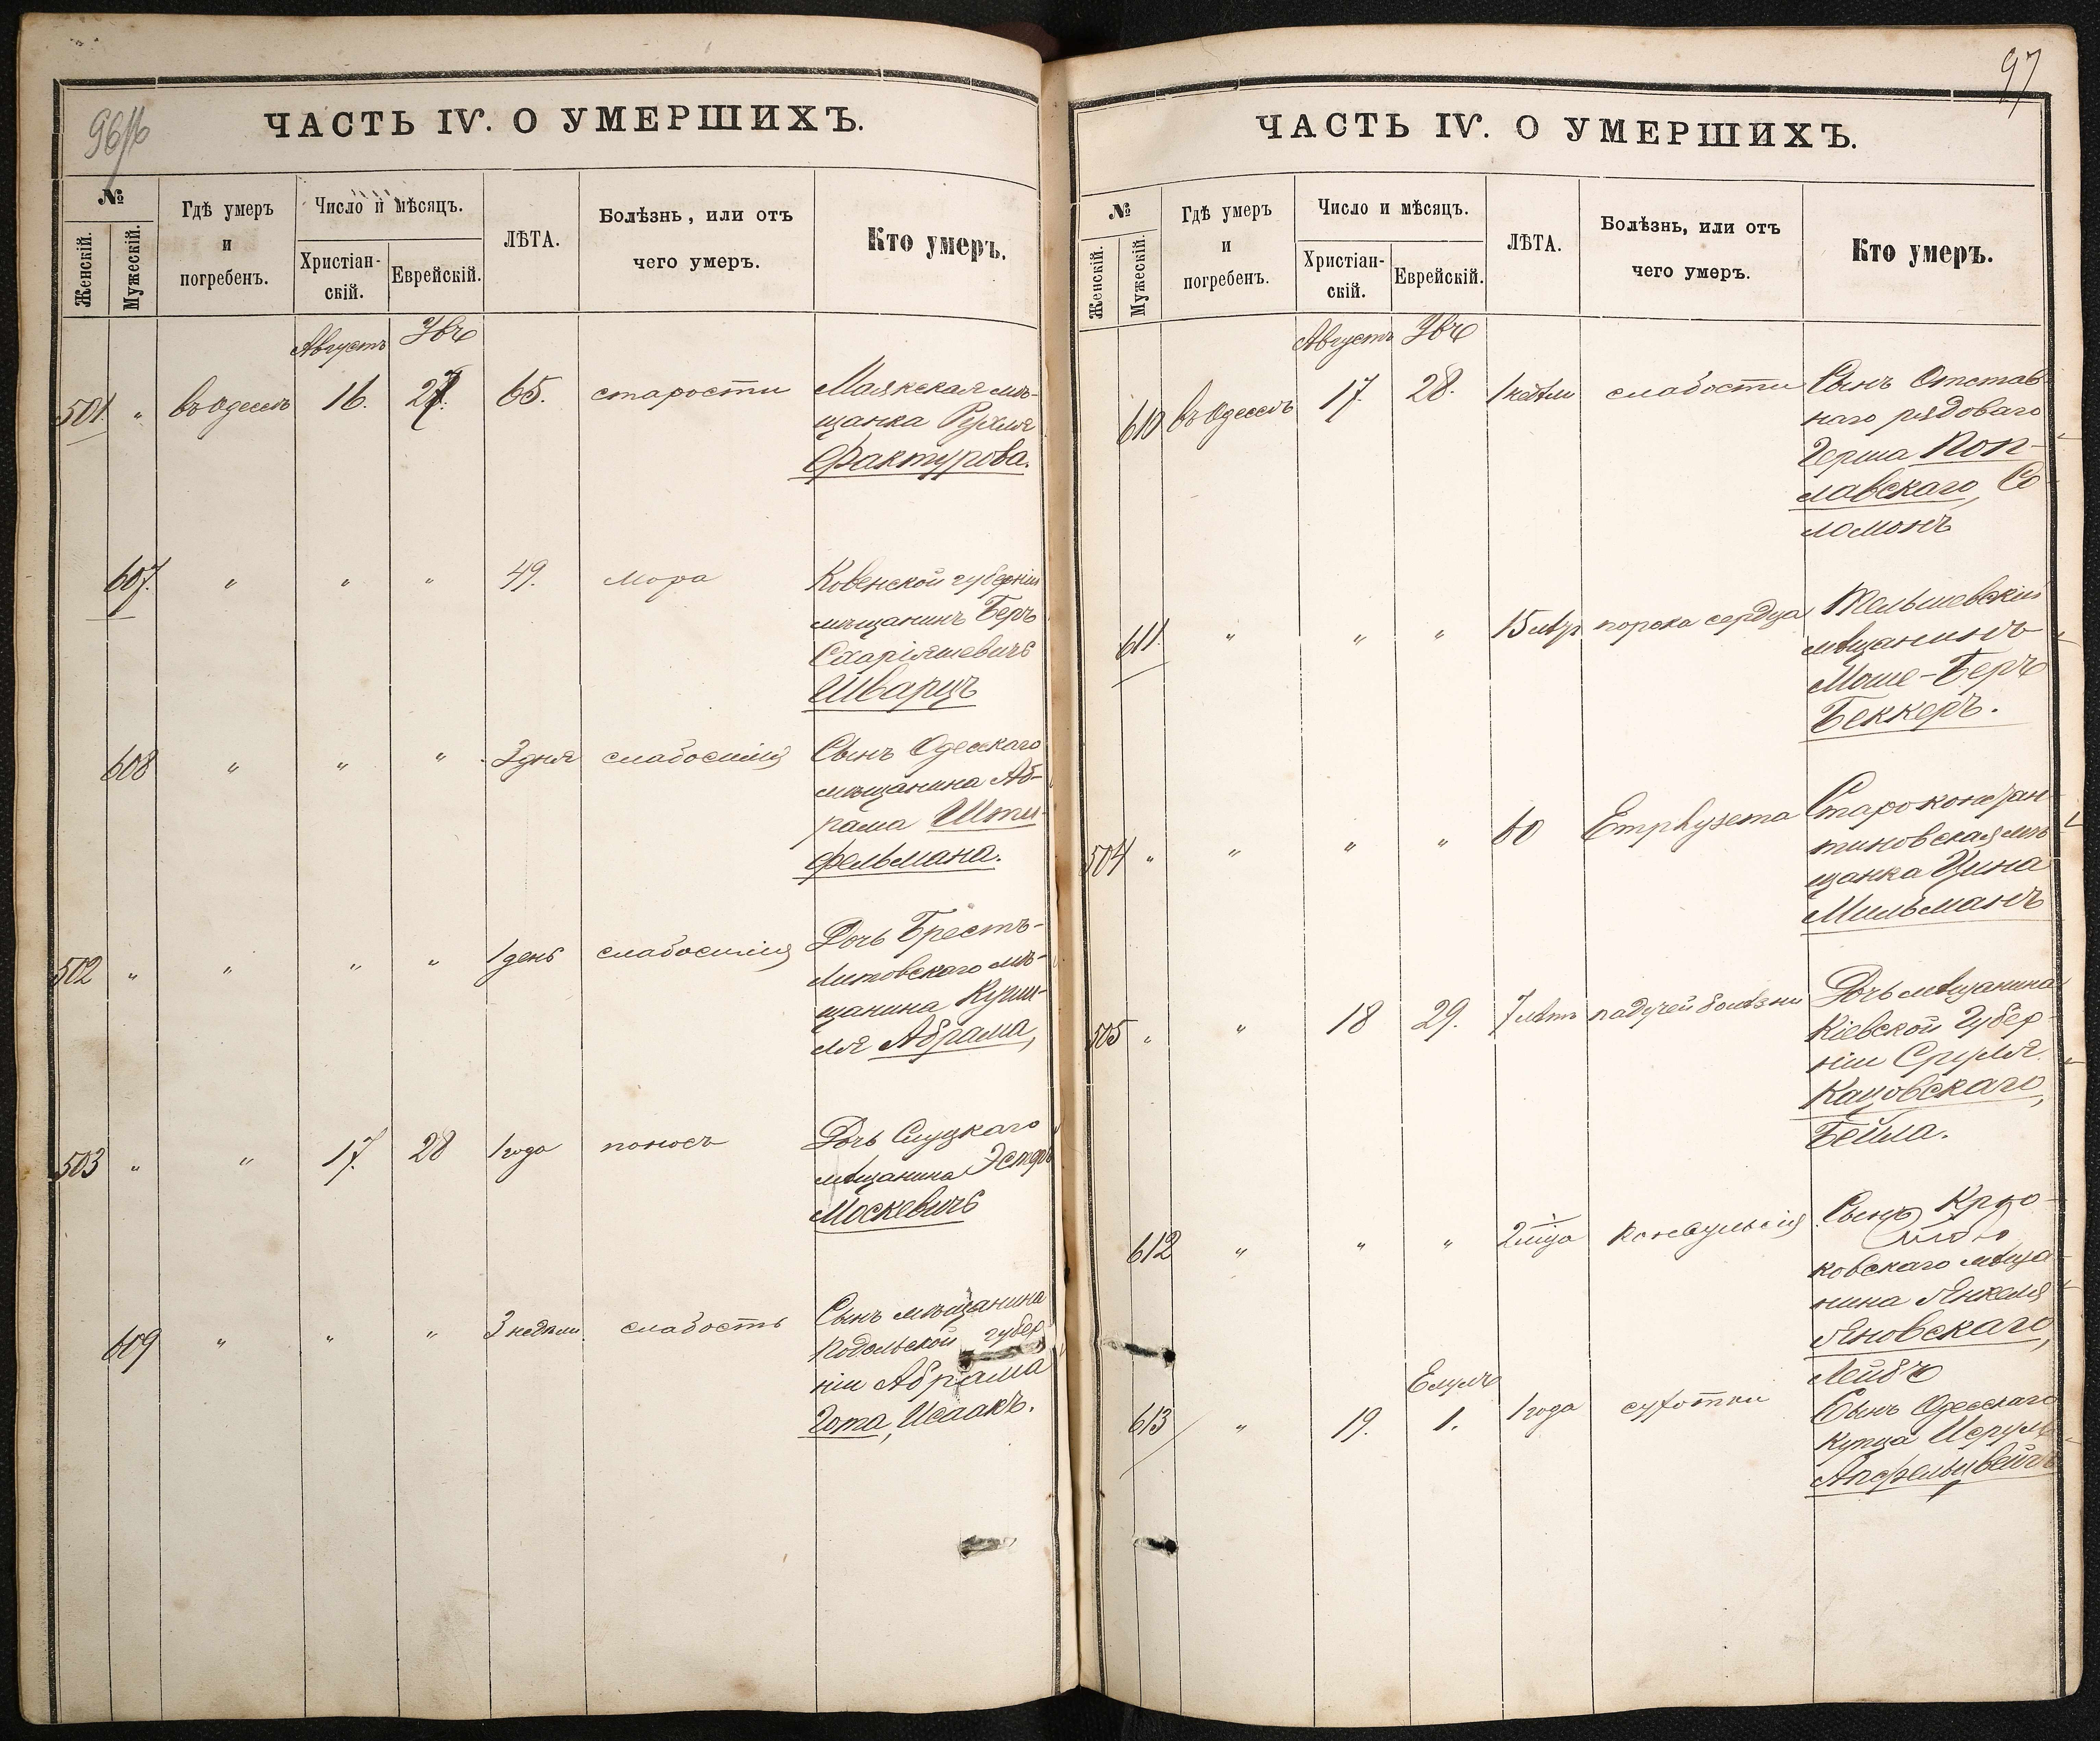 96/б
ЧАСТЬ IV. О УМЕРШИХЪ.
№
Женскій.
Мужескій.
Гдѣ умеръ
и
погребенъ.
Число и мѣсяцъ.
Христіан-
скій.
Еврейскій.
ЛѢТА.
Болѣзнь, или отъ
чего умеръ.
Кто умеръ.
Августъ
501. " въ Одессѣ 16. 27. 65. старости Маякская мѣ-
щанка Рухля
Фактурова.
607. " " " 49. Ковенской губерніи
мѣщанинъ Беръ
Шварцъ
608 " " " 3 дня слабосилія Сынъ Одесскаго
мѣщанина Аб-
рама Шти-
фельмана.
502 " " " " 1 день слабосилія Дочь Брестъ-
Литовскаго мѣ-
щанина
Абрама,
503 " " 17. 28 1 года поносъ Дочь Слуцкаго
мѣщанина Эстеръ
Москевичъ
609 " " " 3 недѣли слабость Сынъ мѣщанина
Подольской губер
ніи Абрама
Гота, Исаакъ.
97
ЧАСТЬ IV. О УМЕРШИХЪ.
№
Женскій.
Мужескій.
Гдѣ умеръ
и
погребенъ.
Число и мѣсяцъ.
Христіан-
скій.
Еврейскій.
ЛѢТА.
Болѣзнь, или отъ
чего умеръ.
Кто умеръ.
Августъ
610 въ Одессѣ 17. 28. слабости Сынъ Отстав
наго рядоваго
Герша Поп-
лавскаго, Со
ломонъ
611. " " " 15 порока сердца Тельшевскій
мѣщанинъ
Моше-Беръ
Беккеръ.
504 " " " " 60 Emphysema Староконстан
тиновская мѣ
щанка Цина
Мильманъ
505 " " 18 29. 7 лѣтъ падучей болѣзни Дочь мѣщанина
Кіевской Губер
ніи Сруля
Кацовскаго,
Бейла.
612 " " " 2 м-ца Конвульсія Сынъ Крю-
ковскаго мѣща
нина Янкеля
Яновскаго,
Лейбъ
Елулъ
613 " 19. 1. 1 года сухотки Сынъ Одесскаго
купца Исруль
Апфельцвейгъ